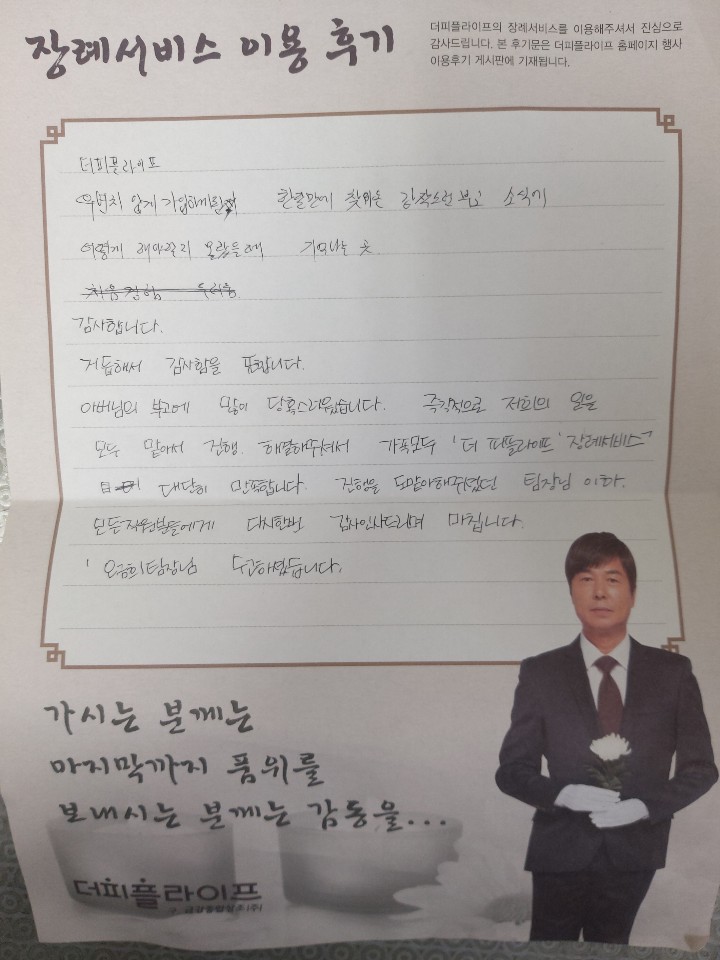 장례서비스 이용 후기
더피플라이프의 장례서비스를 이용해주셔서 진심으로
감사드립니다. 본 후기문은 더피플라이프 홈페이지 행사
이용후기 게시판에 기재됩니다.
더피플라이프
우연치 않게 가입하게된지 한달만에 찾아온 갑작스런 부고 소식에
어떻게 해야할지 기억나는 곳.
처음 경험 두려움
감사합니다.
거듭해서 감사함을 표합니다.
아버님의 부고에 많이 당혹스러웠습니다. 즉각적으로 저희의 일을
모두 맡아서 진행. 해결해주셔서 가족모두 '더 피플라이프' 장례서비스
대단히 만족합니다. 진행을 도맡아해주셨던 팀장님 이하.
모든직원분들에게 다시한번 감사인사드리며 마칩니다.
오금희팀장님 수고하셨습니다.
가시는 분께는
마지막까지 품위를
보내시는 분께는 감동을...
더피플라이프